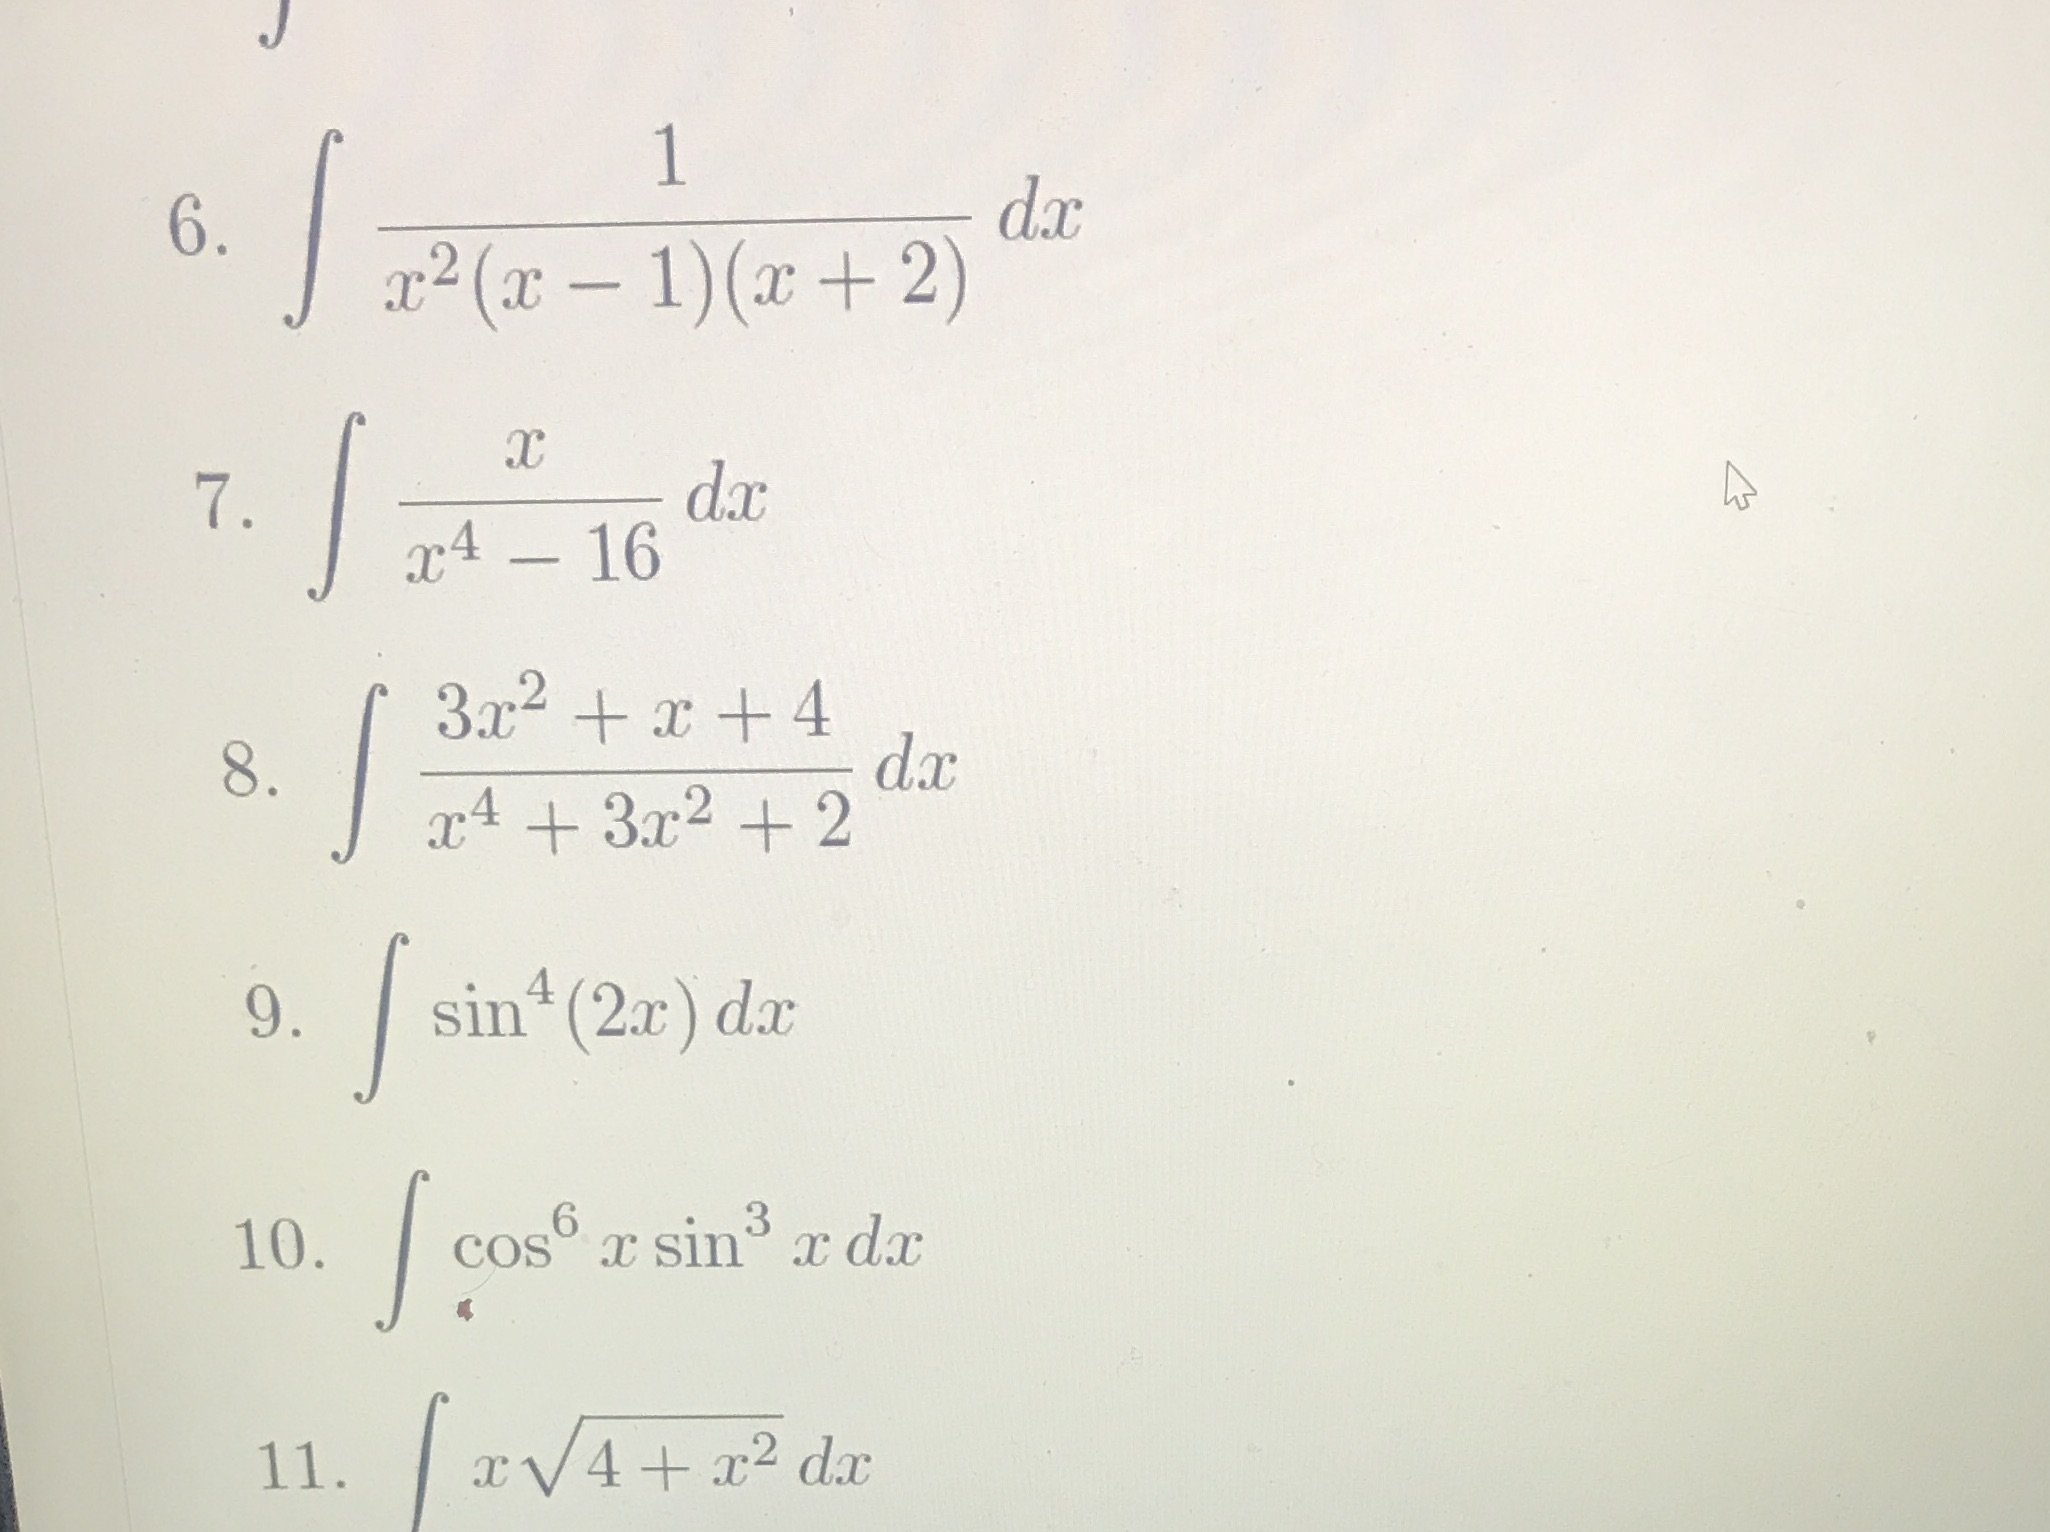 6. ∫ 1/(x²(x − 1)(x + 2)) dx
7. ∫ x/(x⁴ − 16) dx
8. ∫ (3x² + x + 4)/(x⁴ + 3x² + 2) dx
9. ∫ sin⁴(2x) dx
10. ∫ cos⁶ x sin³ x dx
11. ∫ x√(4 + x²) dx